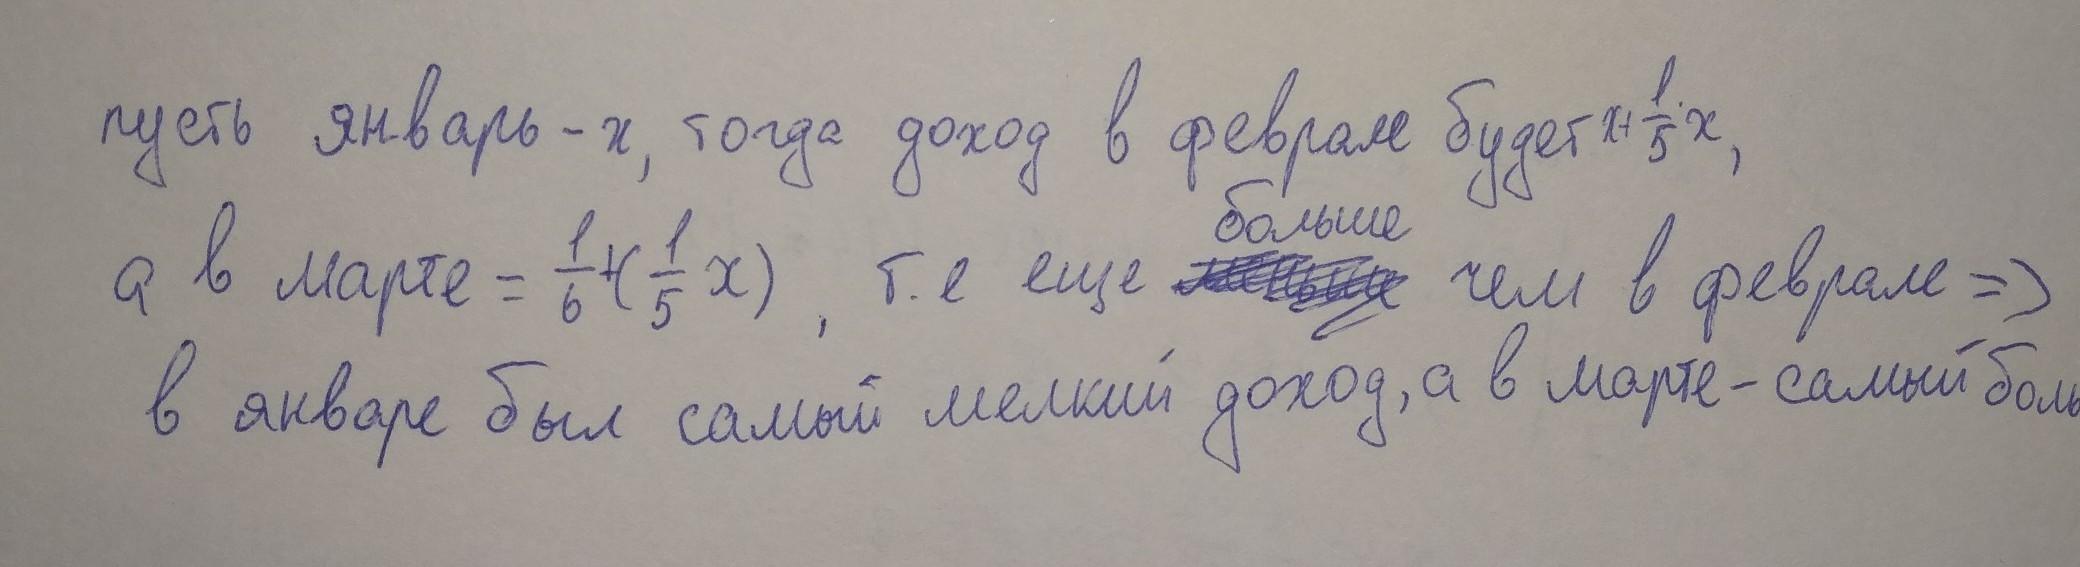 пусть январь - x, тогда доход в феврале будет x+ 1/5 x,
а в марте = 1/6 + (1/5 x), т.е еще больше чем в феврале =>
в январе был самый мелкий доход, а в марте - самый боль